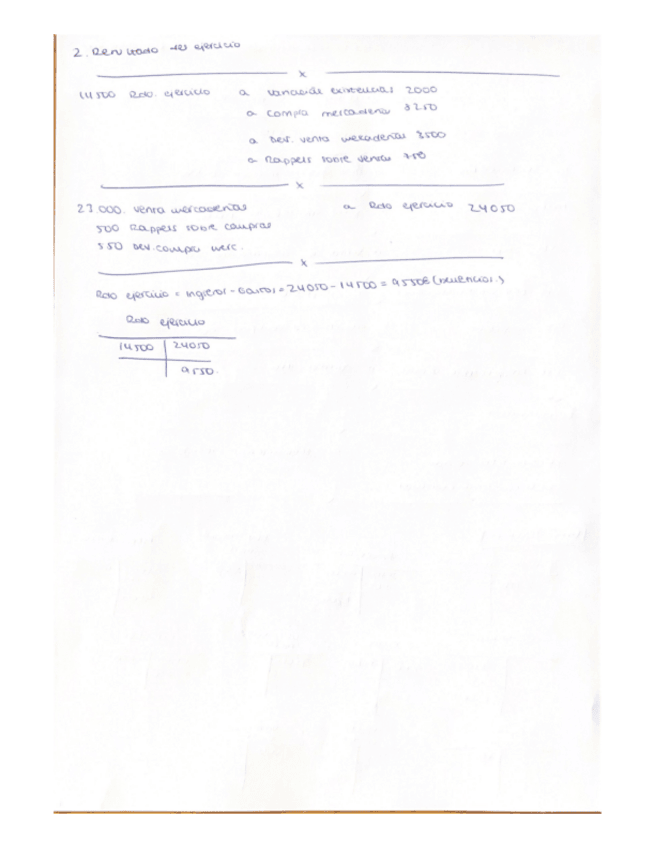 2. Resultado del ejercicio
x
14500 Rdo. ejercicio a variac de existencias 2000
a compra mercaderias 8250
a Dev. venta mercaderias 3500
a Rappels sobre ventas 750
x
23.000. venta mercaderias a Rdo ejercicio 24050
500 Rappels sobre compras
550 Dev. compra merc.
x
Rdo ejercicio = ingresos - Gastos = 24050 - 14500 = 9550€ (
Rdo ejercicio
14500 24050
9550.